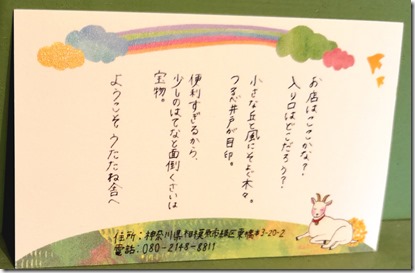 お店はここかな?
入り口はどこだろう?
小さな丘と風にそよぐ木々。
つるべ井戸が目印。
便利すぎるから、
少しのはてなと面倒くさいは
宝物。
ようこそ うたたね舎へ
住所:神奈川県相模原市緑区東橋本3-20-2
電話:080-2148-8811